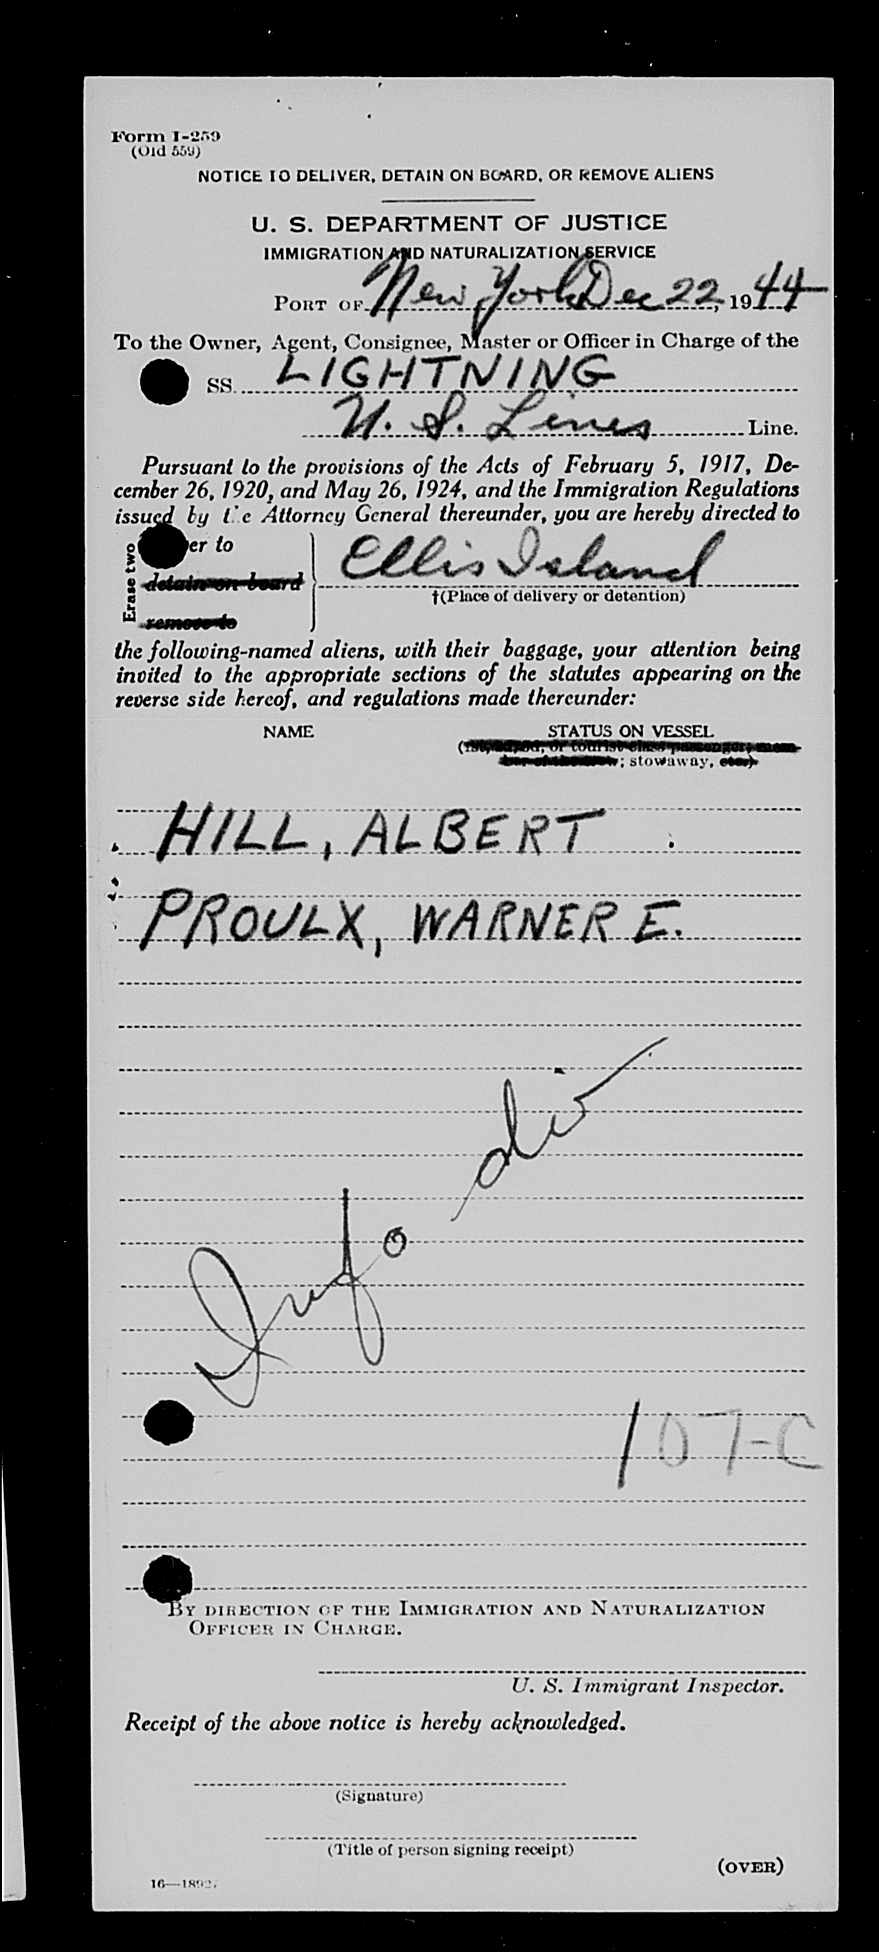 Form I-259
(Old 559)
NOTICE TO DELIVER, DETAIN ON BOARD, OR REMOVE ALIENS
U. S. DEPARTMENT OF JUSTICE
IMMIGRATION AND NATURALIZATION SERVICE
PORT OF New York Dec 22, 1944
To the Owner, Agent, Consignee, Master or Officer in Charge of the
SS. LIGHTNING
U. S. Lines Line.
Pursuant to the provisions of the Acts of February 5, 1917, De-
cember 26, 1920, and May 26, 1924, and the Immigration Regulations
issued by the Attorney General thereunder, you are hereby directed to
Erase two
er to
detain on board
remove to
Ellis Island
†(Place of delivery or detention)
the following-named aliens, with their baggage, your attention being
invited to the appropriate sections of the statutes appearing on the
reverse side hereof, and regulations made thereunder:
NAME STATUS ON VESSEL
(1st, 2d, 3d, or tourist-class passenger; mem-
ber of the crew; stowaway, etc.)
HILL, ALBERT
PROULX, WARNER E.
Info div
107-C
BY DIRECTION OF THE IMMIGRATION AND NATURALIZATION
OFFICER IN CHARGE.
U. S. Immigrant Inspector.
Receipt of the above notice is hereby acknowledged.
(Signature)
(Title of person signing receipt)
(OVER)